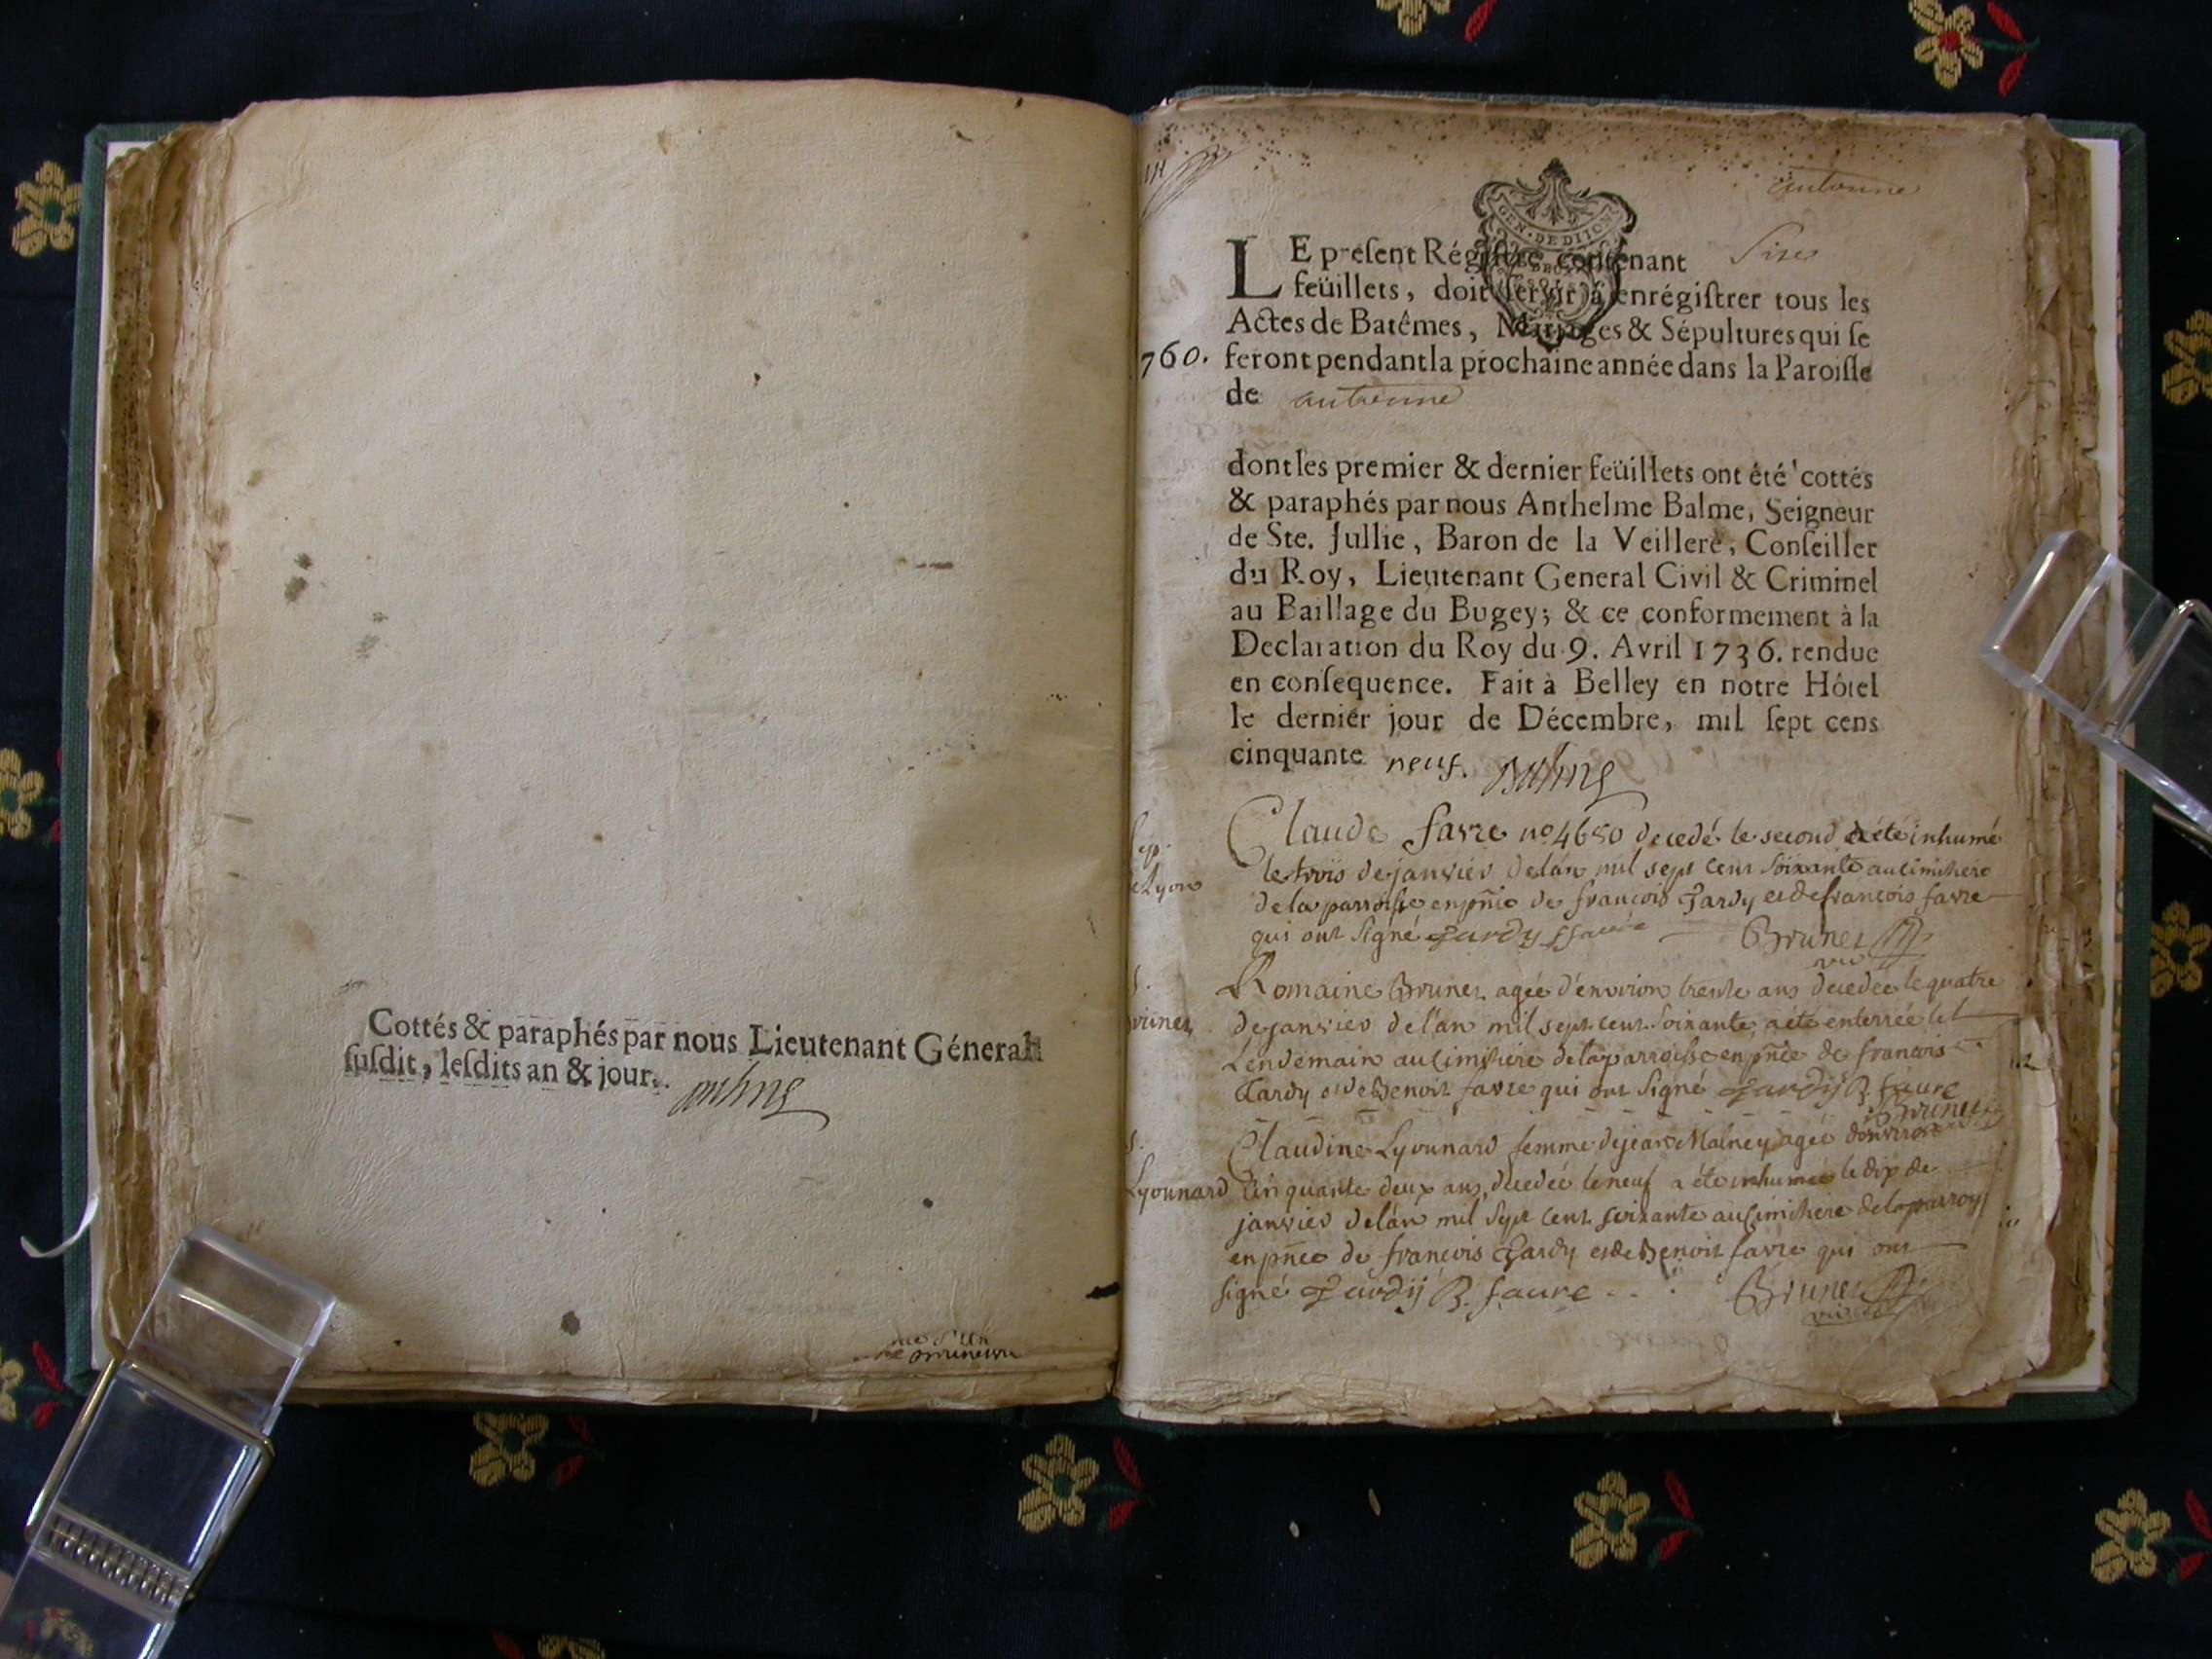 Cottés & paraphés par nous Lieutenant Géneral
ſuſdit, leſdits an & jour.
GEN · DE DIJON
LE preſent Régiſtre contenant Sixe
feüillets, doit ſervir à enrégiſtrer tous les
Actes de Batêmes, Mariages & Sépultures qui ſe
760. feront pendant la prochaine année dans la Paroiſſe
de
dont les premier & dernier feüillets ont été cottés
& paraphés par nous Anthelme Balme, Seigneur
de Ste. Jullie, Baron de la Veillere, Conſeiller
du Roy, Lieutenant General Civil & Criminel
au Baillage du Bugey; & ce conformement à la
Declaration du Roy du 9. Avril 1736. rendue
en conſequence. Fait à Belley en notre Hôtel
le dernier jour de Décembre, mil ſept cens
cinquante neuf. Balme
Claude favre no 4650 decedé le second a été inhumé
le trois de janvier de lan mil sept cent soixante au cimitiere
de la parroisse en pñce de francois Tardy et de francois favre
qui ont signé Tardy Brunet
vic
Romaine Brunet agée d'environ trente ans decedée le quatre
Brunet de janvier de l'an mil sept cent soixante, a été enterrée le
Lendemain au cimitiere de la parroisse en pñce de francois
Tardy et de Benoit favre qui ont signé Tardij B. faure
Brunet
Claudine Lyonnard femme de jean Malney agée d'environ
Lyonnard Cinquante deux ans, decedée le neuf a été inhumée le dix de
janvier de lan mil sept cent soixante au cimitiere de la parroy
en pñce de francois Tardy et de Benoit favre qui ont
signé Tardij B. faure Brunet